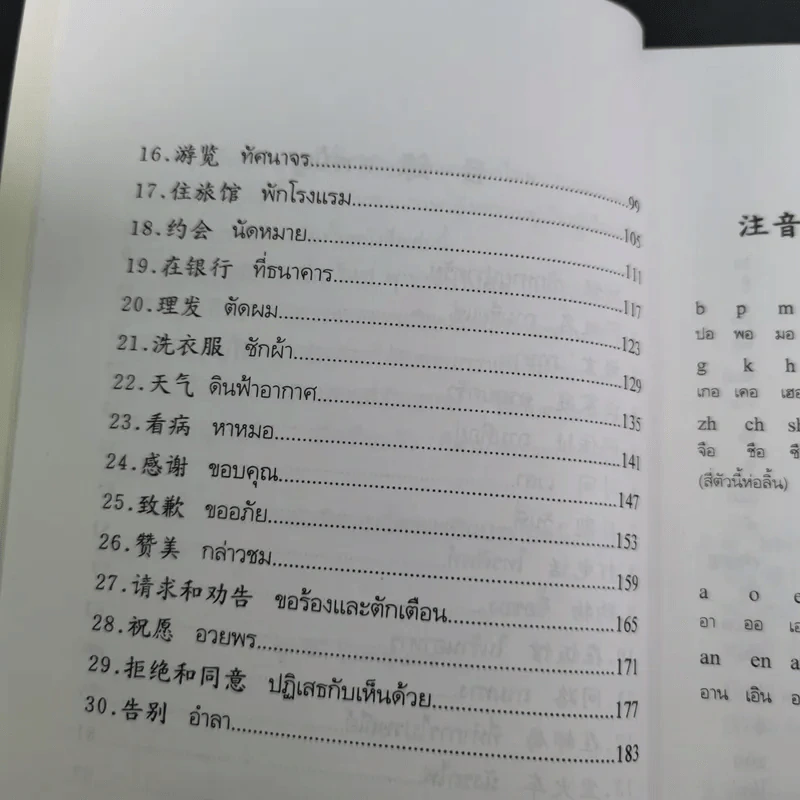 16.游览 ทัศนาจร 99
17.住旅馆 พักโรงแรม 105
18.约会 นัดหมาย 111
19.在银行 ที่ธนาคาร 117
20.理发 ตัดผม 123
21.洗衣服 ซักผ้า 129
22.天气 ดินฟ้าอากาศ 135
23.看病 หาหมอ 141
24.感谢 ขอบคุณ 147
25.致歉 ขออภัย 153
26.赞美 กล่าวชม 159
27.请求和劝告 ขอร้องและตักเตือน 165
28.祝愿 อวยพร 171
29.拒绝和同意 ปฏิเสธกับเห็นด้วย 177
30.告别 อำลา 183
注音
b p m
ปอ พอ มอ
g k h
เกอ เคอ เฮอ
zh ch sh
จือ ชือ
(สี่ตัวนี้ห่อลิ้น)
a o e
อา ออ
an en a
อาน เอิน